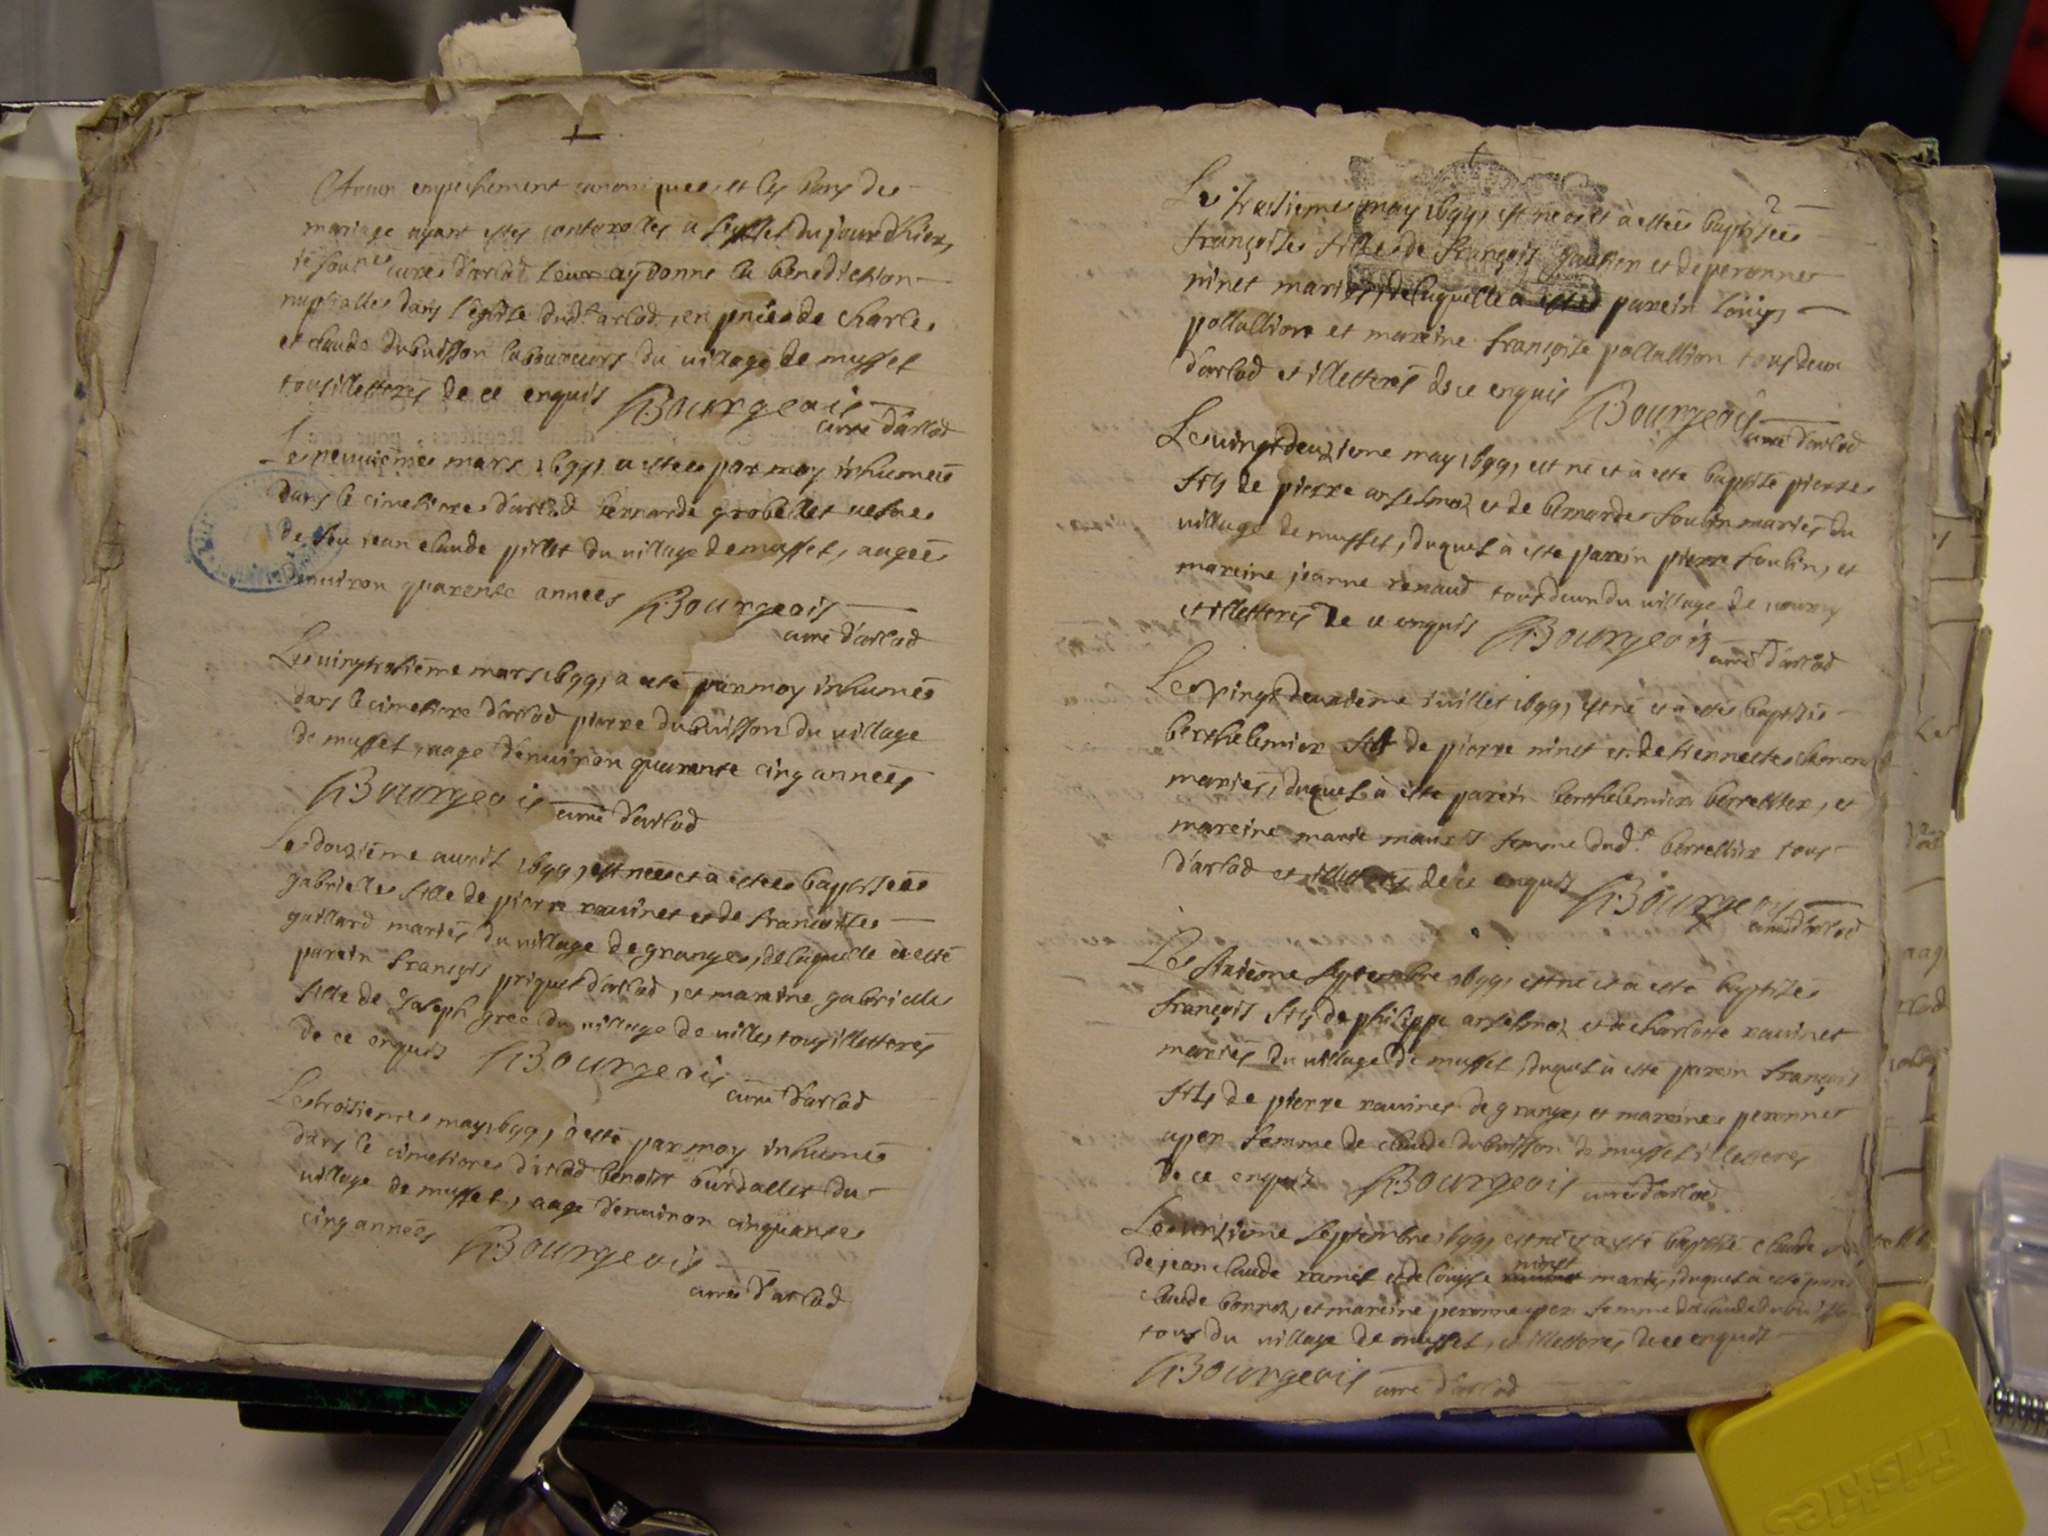 Aucun empeschement canonique et les bans de
mariage ayant estes controlles a seyssel du jour d'hier,
ie soubne cures d'arlod leur ay donne la benediction
nuptialle dans l'eglise dud.t arlod, en pnce de charle
et claude dubuisson laboureurs du village de mussel
tous illetteres de ce enquis HBourgeois
curé d'arlod
Le neuuieme mars 1699, a estee par moy inhumeé
dans le cimetiere d'arlod bernarde grobellet uefue
de feu iean claude pillet du village de mussel, aageé
denuiron quarente anneés HBourgeois
curé d'arlod
Le uingt mars 1699, a esté par moy inhumé
dans le cimetiere d'arlod pierre dubuisson du village
de mussel, aagé denuiron quarente cinq anneés
HBourgeois curé d'arlod
Le douzième auril 1699, est neé et à estee baptiseé
gabrielle fille de pierre rauinet et de francoise
gaillard mariés du village de granges, de laquelle à esté
parein françois priquet d'arlod, et mareine gabrielle
fille de Joseph gree du village de uille, tous illetterés
de ce enquis HBourgeois
curé d'arlod
Le troisieme may 1699, à esté par moy inhumé
dans le cimetiere d'arlod benoist burdallet du
village de mussel, aagé denuiron cinquante
cinq anneés HBourgeois
curé d'arlod
Le troisieme may 1699, est neé et à estée baptiseé
françoise fille de françois gautier et de peronne
ninet mariés, de laquelle a esté parein louys
pollallion et mareine françoise pollallion tous deux
d'arlod et illetterés de ce enquis HBourgeois
curé d'arlod
Le uingt deuzieme may 1699, est né et à esté baptisé pierre
fils de pierre anselmoz et de bernarde foulin mariés du
village de mussel, duquel à esté parein pierre foulin, et
mareine jeanne renaud tous deux du village de
et illetterés de ce enquis HBourgeois
curé d'arlod
Le Vingt deuxieme iuillet 1699, est né et à esté baptisé
berthelemier fils de pierre ninet et de tiennette
mariés, duquel à esté parein berthelemier berrellier, et
mareine marie femme dud.t berrellier tous
d'arlod et illetterés de ce enquis HBourgeois
curé d'arlod
Le septembre 1699, est né et à esté baptisé
françois fils de philippe anselmoz et de charlotte rauinet
mariés du village de mussel, duquel à esté parein françois
fils de pierre rauinet de granges et mareine peronne
uper femme de claude dubuisson de mussel illetteres
de ce enquis HBourgeois curé d'arlod
Le unzième septembre 1699, est né et a esté baptisé claude
de jean claude ramel et de louyse ninet mariés, duquel a esté parein
claude bornoz, et mareine peronne uper femme de claude dubuisson
tous du village de mussel, et illetterés de ce enquis
HBourgeois curé d'arlod
Friskies